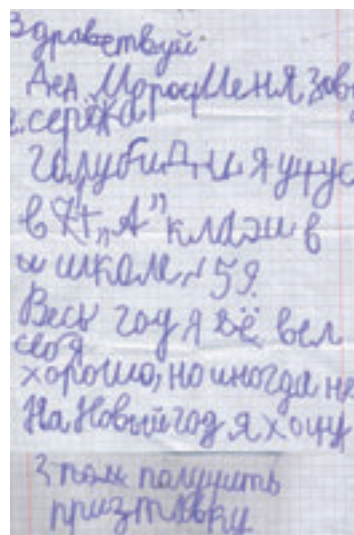 Здравствуй
Дед Мороз Меня зову
г. серёжа
Голубь и я учус
в 7 "А" класи в
и школе, 59.
Весь год я вё вел
себя
хорошо, но иногда не
На Новый год я хочу
получить
приставку